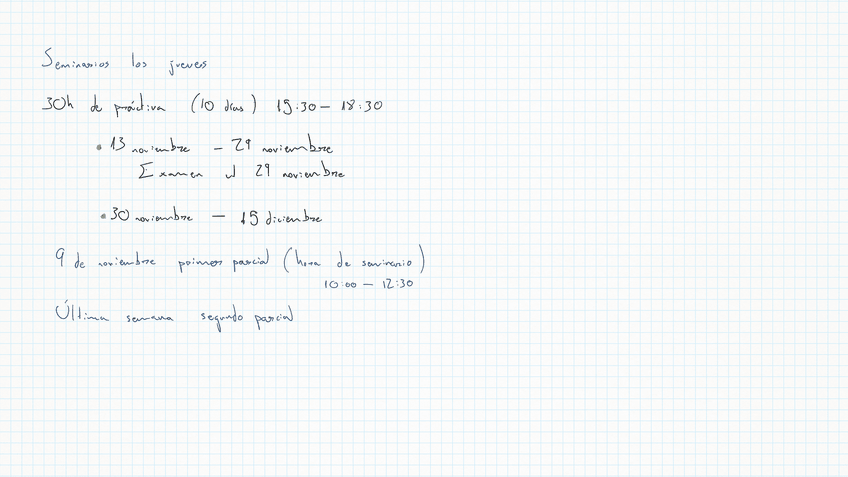 Seminarios los jueves
30h de práctiva (10 días) 15:30 – 18:30
• 13 noviembre – 29 noviembre
Examen el 29 noviembre
• 30 noviembre – 15 diciembre
9 de noviembre primer parcial (hora de seminario)
10:00 – 12:30
Última semana segundo parcial